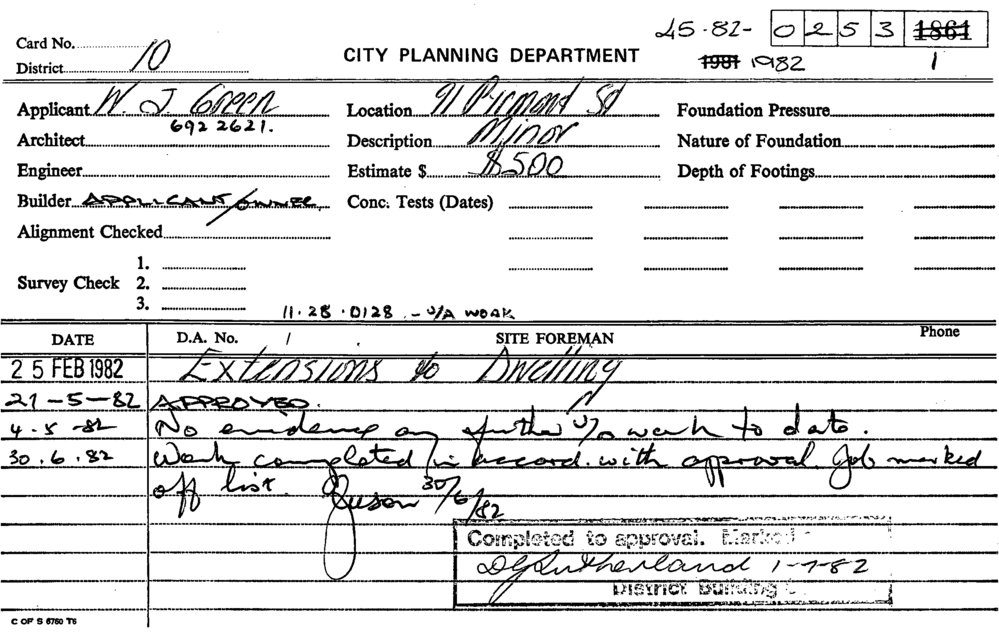 45·82- 0 2 5 3 1861
Card No. 10
CITY PLANNING DEPARTMENT
1981 1982 1
District
Applicant W. J Green Location 91 Pyrmont St Foundation Pressure
692 2621.
Architect Description Minor Nature of Foundation
Engineer Estimate $ $500 Depth of Footings
Builder APPLICANT/OWNER Conc. Tests (Dates)
Alignment Checked
1.
Survey Check 2.
3.
11·28·0128 - U/A WORK
DATE D.A. No. / SITE FOREMAN Phone
25 FEB 1982 Extensions to Dwelling
21-5-82 APPROVED.
4.5-82 No evidence any further U/A work to date.
30.6.82 Work completed in accord. with approval. Job marked
off list. 30/6/82
Completed to approval. Marked
DGSutherland 1-7-82
District Building
C OF S 6760 T6